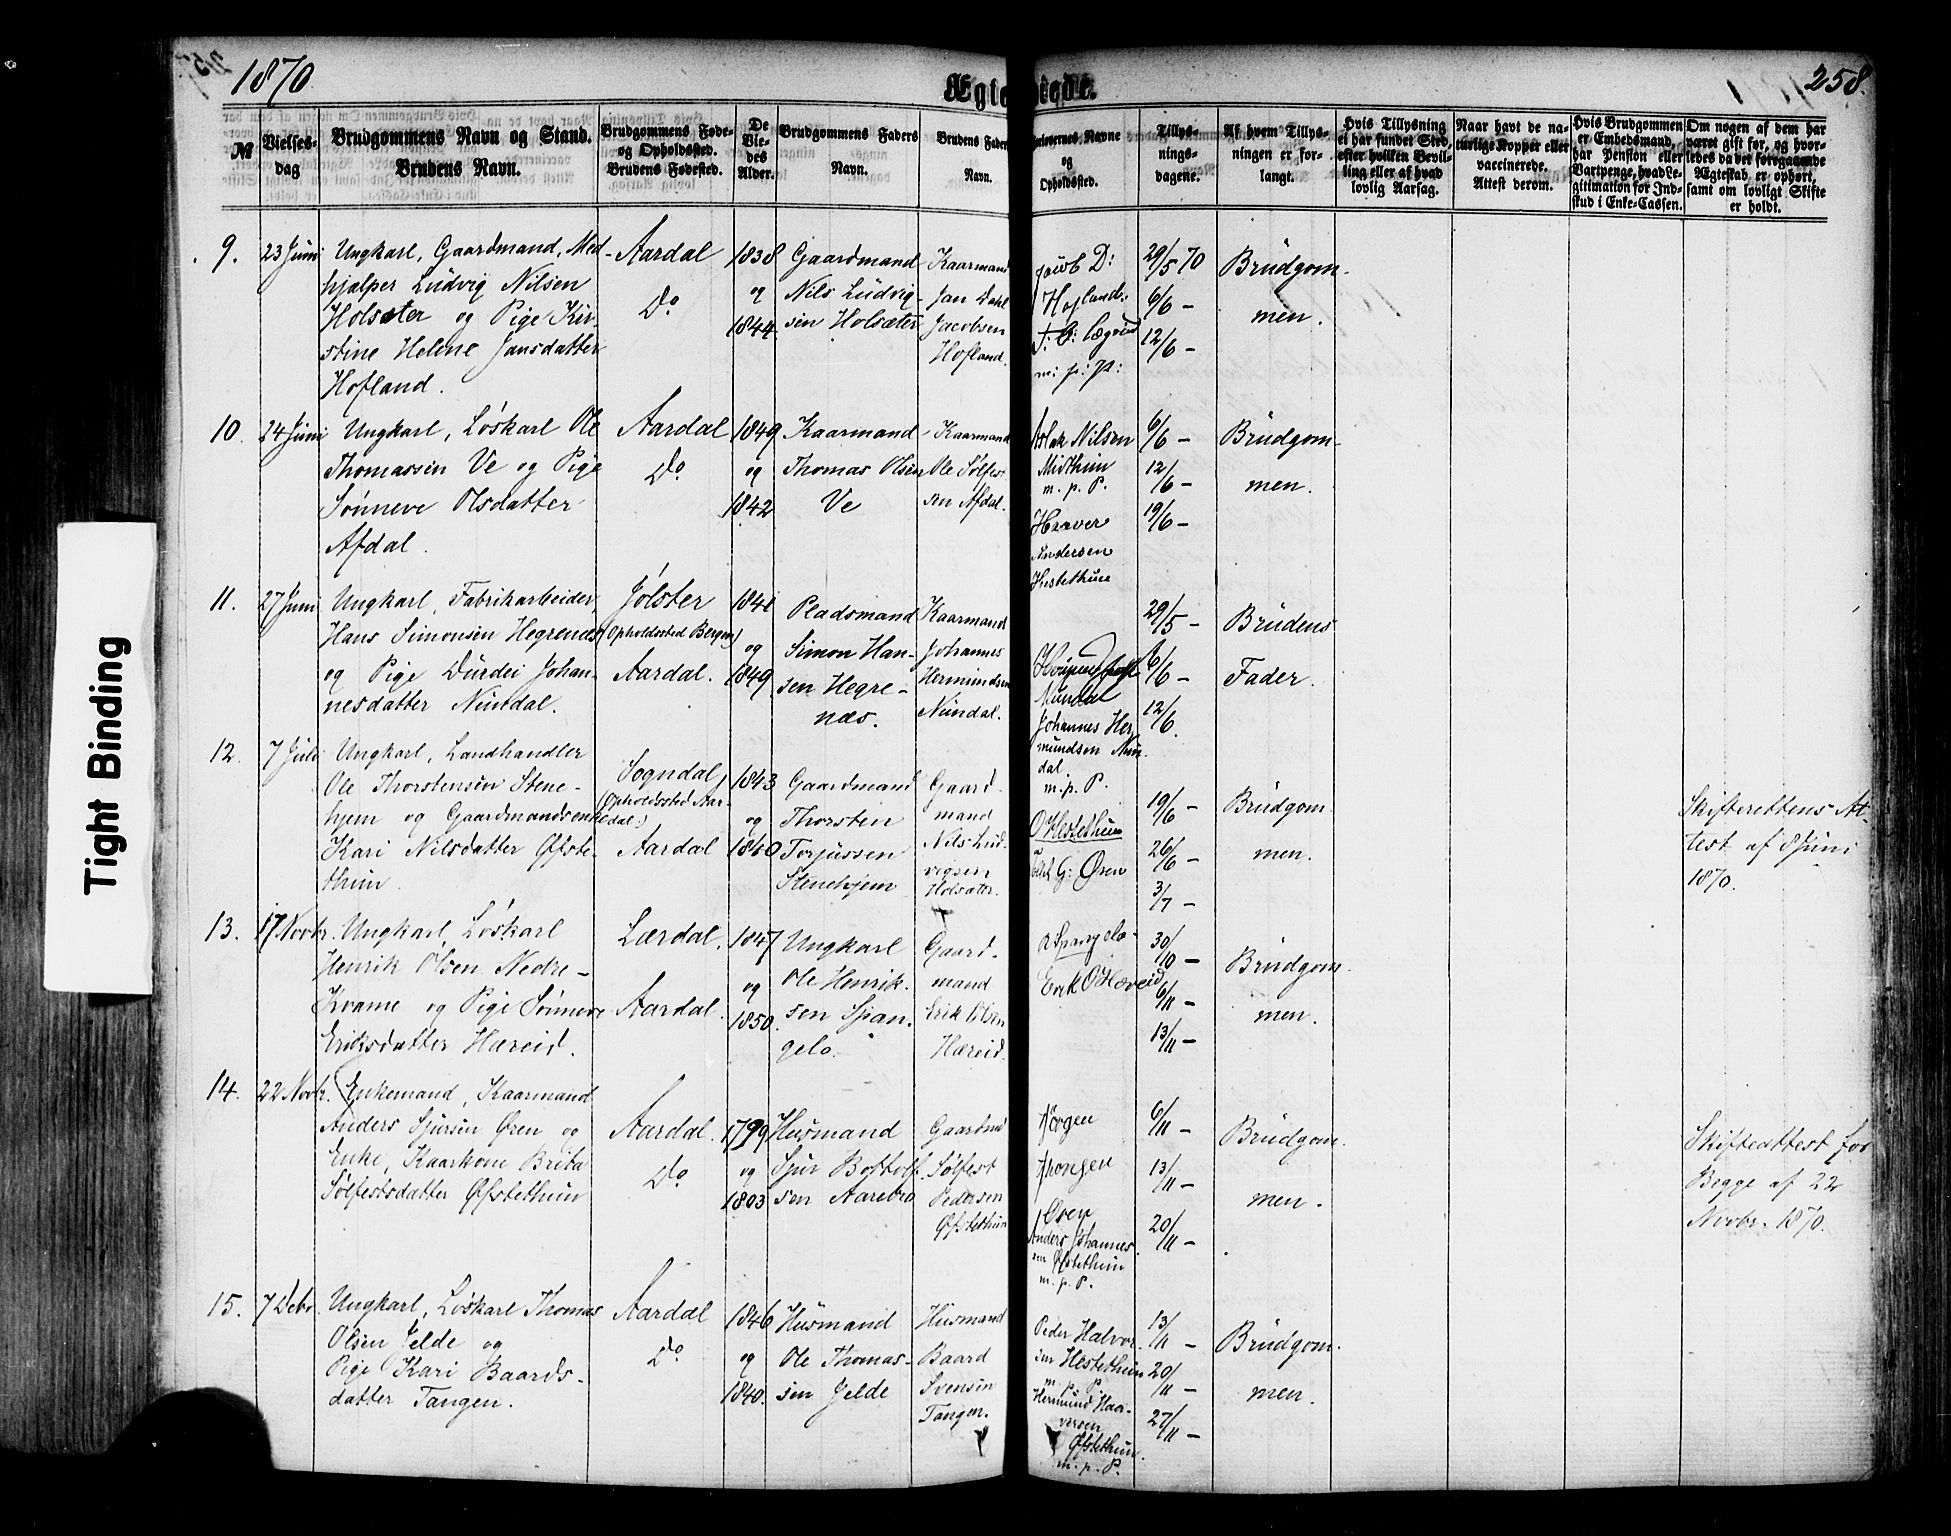 1870
Ægteviede.
258.
№
Vielses-
dag
Brudgommens Navn og Stand.
Brudens Navn.
Brudgommens Føde-
og Opholdssted.
Brudens Fødested.
De
Vie-
des
Alder.
Brudgommens Faders
Navn.
Brudens Fader
Navn.
Navne
og
Opholdssted.
Tillys-
nings-
dagene.
Af hvem Tillys-
ningen er for-
langt.
Hvis Tillysning
ei har fundet Sted,
efter hvilken Bevil-
ling eller af hvad
lovlig Aarsag.
Naar havt de na-
turlige Kopper eller
vaccinerede.
Attest derom.
Hvis Brudgommen
er Embedsmand,
har Pension eller
Vartpenge, hvad Le-
gitimation for Ind-
skud i Enke-Cassen.
Om nogen af dem har
været gift før, og hvor-
ledes da det foregaaende
Ægteskab er ophørt,
samt om lovligt Skifte
er holdt.
9.
23 Juni
Ungkarl, Gaardmand, Med-
hjælper Ludvig Nilsen
Holsæter og Pige Kir-
stine Helene Jansdatter
Hofland.
Aardal
Do
1838
og
1844.
Gaardmand
Nils Ludvig-
sen Holsæter
Kaarmand
Jan Dahl
Jacobsen
Hofland.
Jacob D:
Hofland:
m: p: P:
29/5 70
6/6 —
12/6 —
Brudgom-
men.
10.
24 Juni
Ungkarl, Løskarl Ole
Thomassen Ve og Pige
Sønneve Olsdatter
Afdal.
Aardal
Do
1849
og
1842
Kaarmand
Thomas Olsen
Ve
Kaarmand
Ole Sølfes-
sen Afdal.
Aslak Nilsen
Midthun
m. p. P.
Haaver
Andersen
Hestethun
6/6 —
12/6 —
19/6 —
Brudgom-
men.
11.
27 Juni
Ungkarl, Fabrikarbeider,
Hans Simonsen Hegrenes
og Pige Durdei Johan-
nesdatter Nundal.
Jølster
(Opholdssted Bergen)
Aardal.
1841
og
1849.
Pladsmand
Simon Han-
sen Hegre-
næs.
Kaarmand
Johannes
Hermundsen
Nundal.
Nundal
Johannes Her
mundsen Nun-
dal.
m. p. P.
29/5 —
6/6 —
12/6.
Brudens
Fader.
12.
7 Juli
Ungkarl, Landhandler
Ole Thorstensen Stene-
hjem og Gaardmandsenke
Kari Nilsdatter Øfste-
thun.
Sogndal,
(Opholdssted Aar-
dal.)
Aardal
1843
og
1840
Gaardmand
Thorsten
Torjussen
Stenehjem
Gaard-
mand
Nils Lud-
vigsen
Holsæter.
O Hestethun
G: Øren
19/6 —
26/6 —
3/7 —
Brudgom
men.
Skifterettens At-
test af 8 Juni
1870.
13.
17 Novbr.
Ungkarl, Løskarl
Henrik Olsen Nedre-
Kvame og Pige Sønneve
Eriksdatter Hæreid.
Lærdal.
Aardal.
1847
og
1850.
Ungkarl
Ole Henrik-
sen Span-
gelo.
Gaard-
mand
Erik Olsen
Hæreid.
O Spangelo-
Erik O Hæreid
30/10 —
6/11 —
13/11 —
Brudgom-
men.
14.
22 Novbr.
Enkemand, Kaarmand
Anders Sjursen Øren og
Enke, Kaarkone Brita
Sølfestsdatter Øfstethun
Aardal.
Do
1799
og
1803
Husmand
Sjur Bottolf-
sen Aarebro
Gaardmd
Sølfest
Pedersen
Øfstethun
Jørgen
Øren
Anders Johannes
sen Øfstethun
m. p. P.
6/11 —
13/11 —
20/11 —
Brudgom-
men.
Skifteattest for
Begge af 22
Novbr. 1870.
15.
7 Debr.
Ungkarl, Løskarl Thomas
Olsen Jelde og
Pige Kari Baards-
datter Tangen.
Aardal
Do
1846
og
1840.
Husmand
Ole Thomas-
sen Jelde
Husmand
Baard
Svensen
Tangen.
Peder Halvor-
sen Hestethun
m. p. P.
Hermund Haa-
versen
Øfstethun.
m. p. P.
13/11 —
20/11 —
27/11 —
Brudgom-
men.
Tight Binding